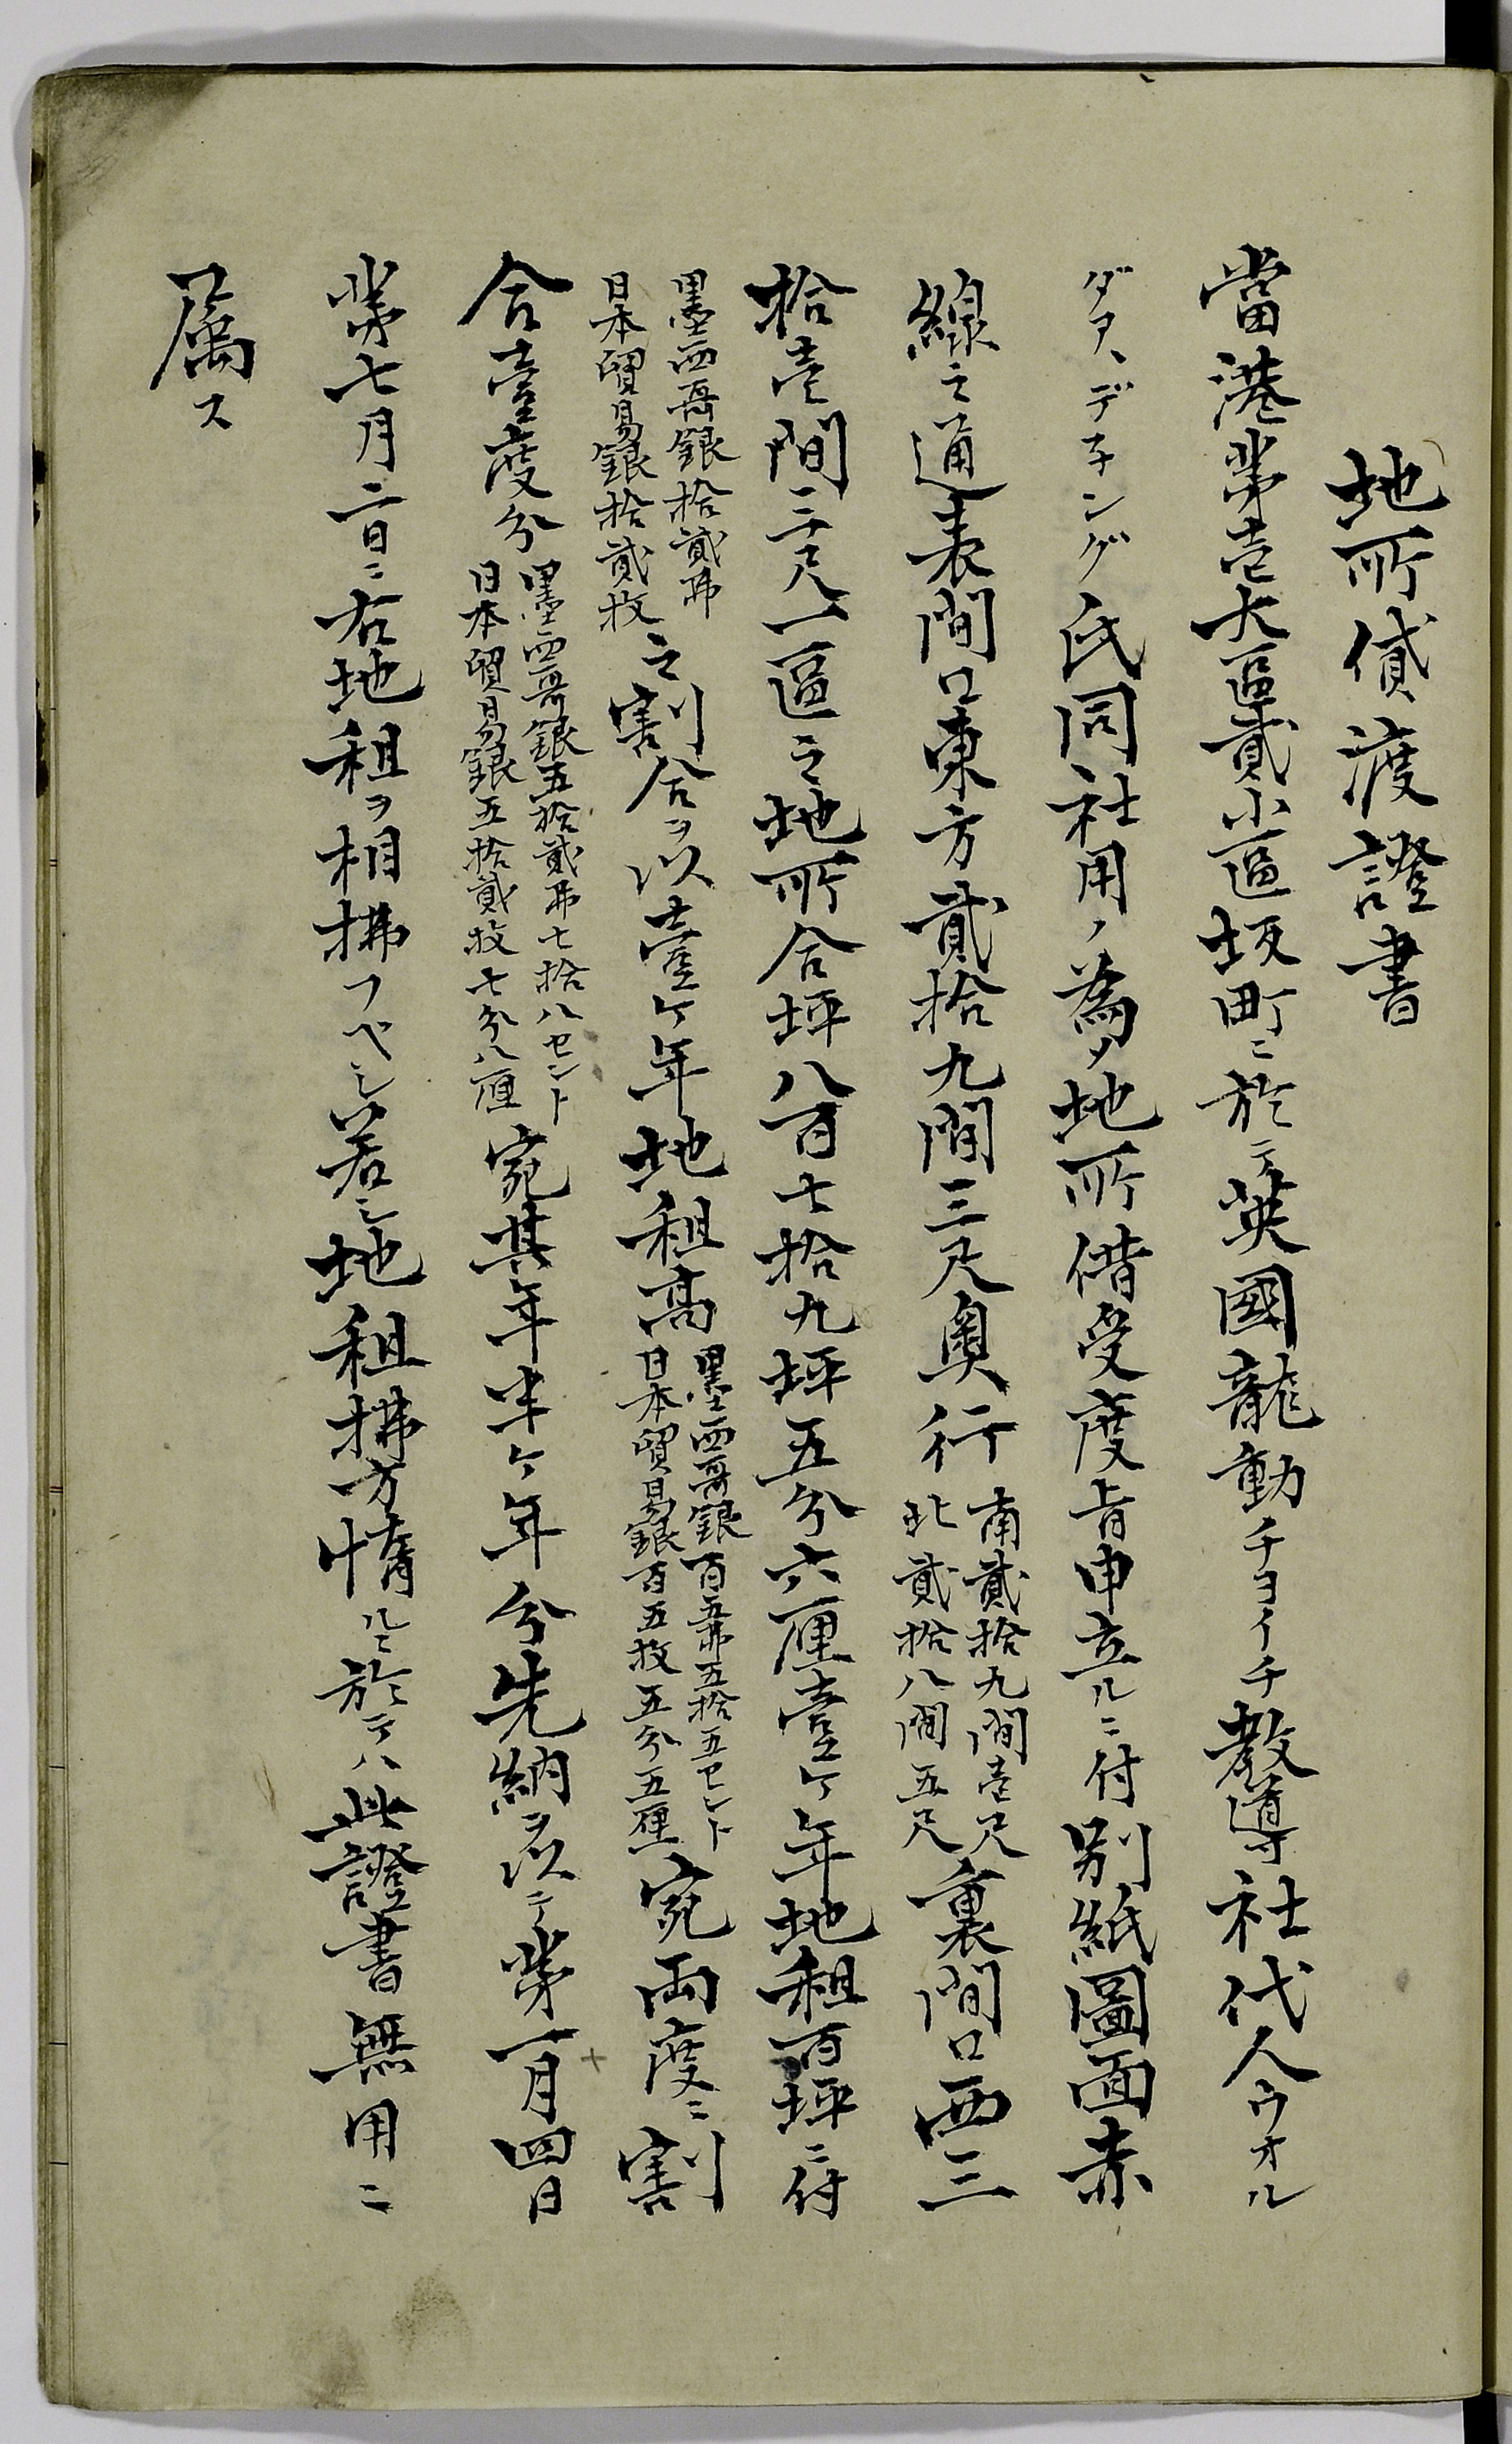 地所貸渡證書
當港第壱大區貳小區坂町ニ於テ英國龍動チヨイチ教導社代人ウオル
ダア、デチング氏同社用ノ為メ地所借受度旨申立ルニ付別紙圖面赤
線之通表間口東方貳拾九間三尺奥行南貳拾九間壱尺北貳拾八間五尺裏間口西三
拾壱間二尺一區之地所合坪八百七拾九坪五分六厘壹ケ年地租百坪ニ付
墨西哥銀拾貳弗日本貿易銀拾貳枚之割合ヲ以壹ケ年地租高墨西哥銀百五弗五拾五セント日本貿易銀百五枚五分五厘宛両度ニ割
合壹度分墨西哥銀五拾貳弗七拾八セント日本貿易銀五拾貳枚七分八厘宛其年半ケ年分先納ヲ以テ第一月四日
第七月二日ニ右地租ヲ相拂フベシ若シ地租拂方惰ルニ於テハ此證書無用ニ
属ス